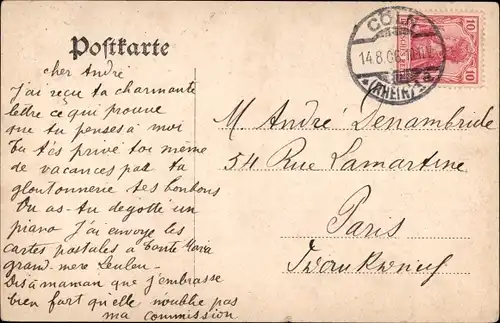 Postkarte
CÖLN
14.8.06.
(RHEIN)
a
10
10
cher André
J'ai reçu ta charmante
lettre ce qui prouve
que tu penses à moi
Tu t'es privé toi même
de vacances par ta
gloutonnerie tes bonbons
Ou as-tu degotté un
piano J'ai envoyé les
cartes postales à Tante Maria
grand-mère Leuleu
Dis à maman que j'embrasse
bien fort qu'elle n'oublie pas
ma commission
M André Denambride
54 Rue Lamartine
Paris
Frankreich